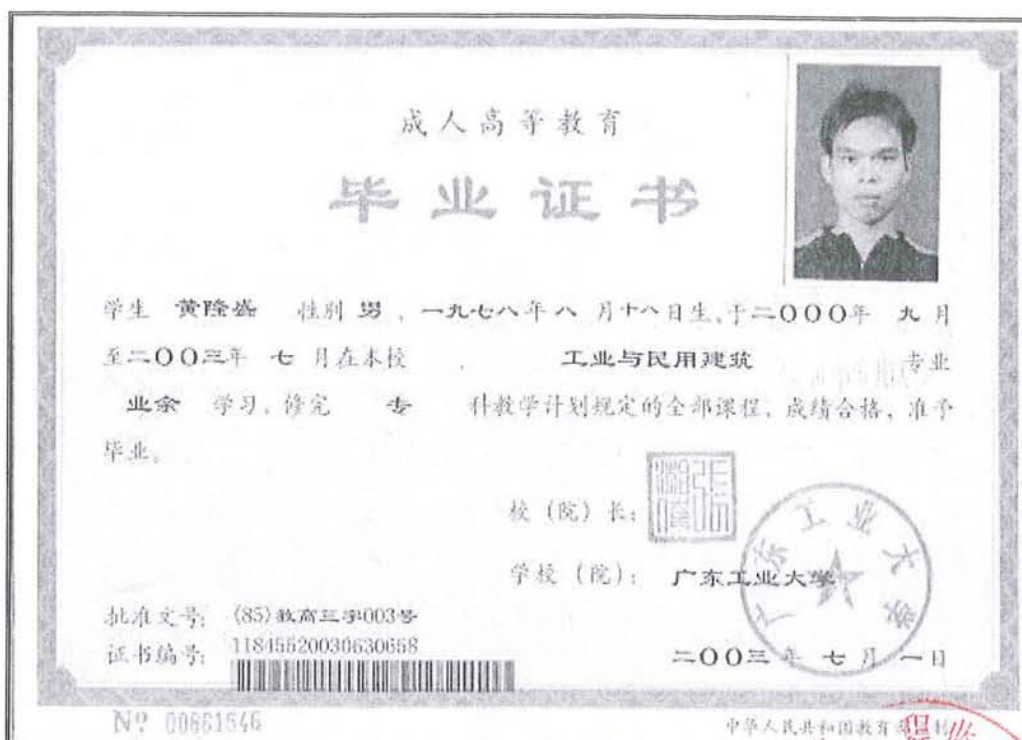 成人高等教育
毕业证书
学生 黄隆盛 性别 男，一九七八年八 月十八日生,于二〇〇〇年 九 月
至二〇〇三年 七 月在本校 工业与民用建筑 专业
业余 学习，修完 专 科教学计划规定的全部课程，成绩合格，准予
毕业。
校（院）长：
学校（院）： 广东工业大学
广东工业大学
批准文号： (85)教高三字003号
证书编号： 11845520030630658
二〇〇三 年 七 月 一日
№ 00861546
中华人民共和国教育部监制